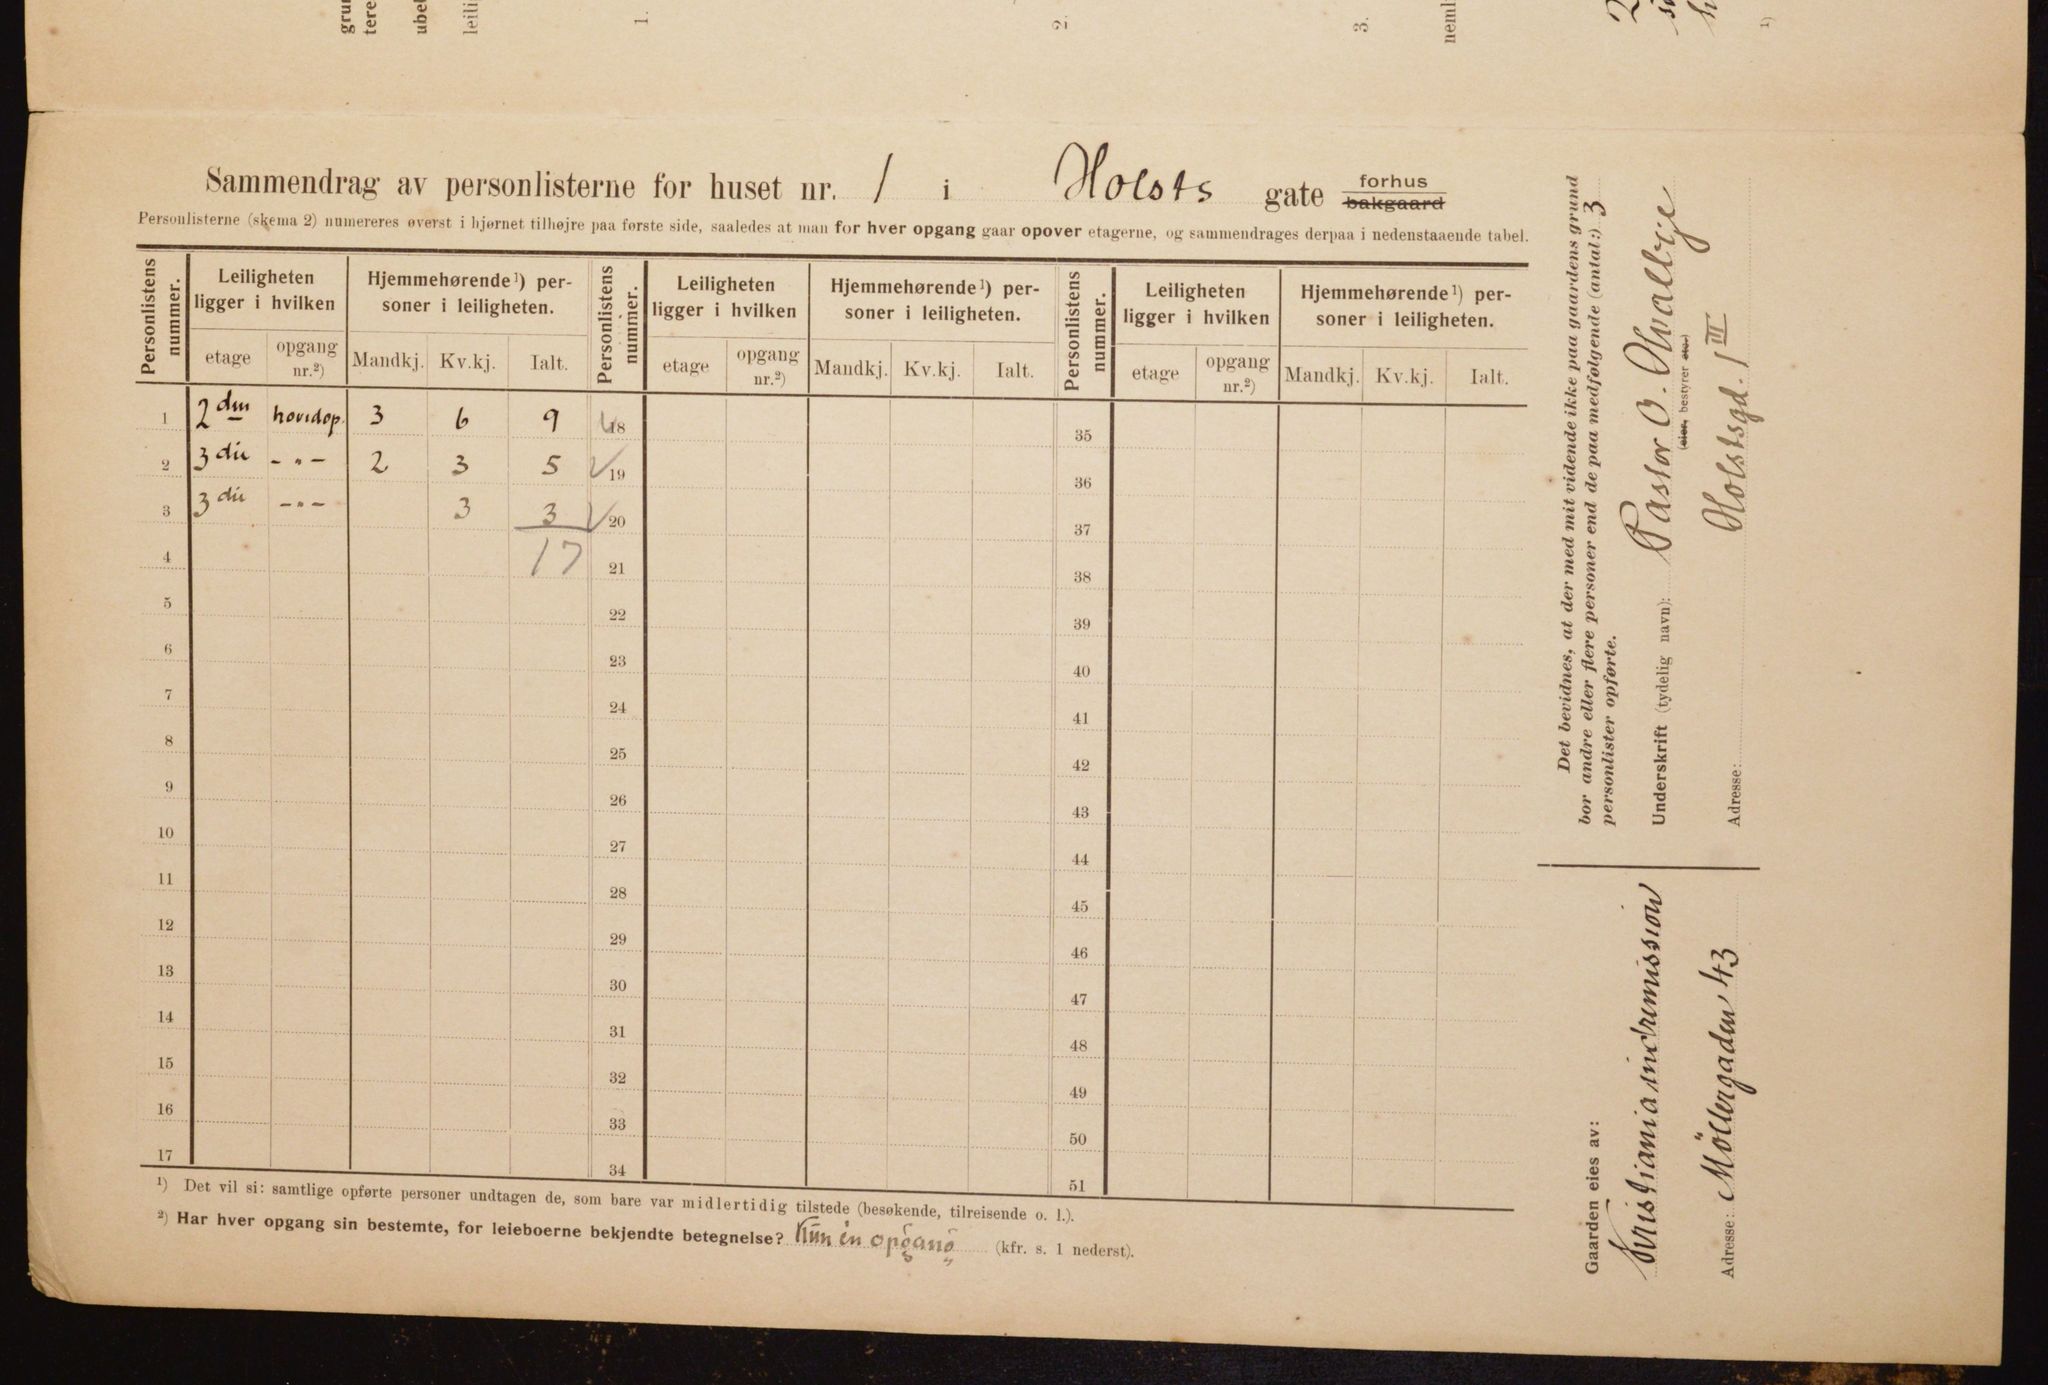 grun
tere
ubel
leili
1.
2.
3.
neml
1)
Sammendrag av personlisterne for huset nr. 1 i Holsts gate forhus bakgaard
Personlisterne (skema 2) numereres øverst i hjørnet tilhøjre paa første side, saaledes at man for hver opgang gaar opover etagerne, og sammendrages derpaa i nedenstaaende tabel.
Personlistens nummer. Leiligheten ligger i hvilken Hjemmehørende¹) personer i leiligheten. Personlistens nummer. Leiligheten ligger i hvilken Hjemmehørende¹) personer i leiligheten. Personlistens nummer. Leiligheten ligger i hvilken Hjemmehørende¹) personer i leiligheten.
etage opgang nr.²) Mandkj. Kv.kj. Ialt. etage opgang nr.²) Mandkj. Kv.kj. Ialt. etage opgang nr.²) Mandkj. Kv.kj. Ialt.
1 2den hovedop. 3 6 9 18 35
2 3die - " - 2 3 5 19 36
3 3die - " - 3 3 20 37
4 17 21 38
5 22 39
6 23 40
7 24 41
8 25 42
9 26 43
10 27 44
11 28 45
12 29 46
13 30 47
14 31 48
15 32 49
16 33 50
17 34 51
¹) Det vil si: samtlige opførte personer undtagen de, som bare var midlertidig tilstede (besøkende, tilreisende o. l.).
²) Har hver opgang sin bestemte, for leieboerne bekjendte betegnelse? Kun en opgang (kfr. s. 1 nederst).
Det bevidnes, at der med mit vidende ikke paa gaardens grund
bor andre eller flere personer end de paa medfølgende (antal:) 3
personlister opførte.
Underskrift (tydelig navn): Pastor O.
(eier, bestyrer etc.)
Adresse: Holstsgd. 1 III
Gaarden eies av:
Kristiania indremission
Adresse: Möllergaden 43